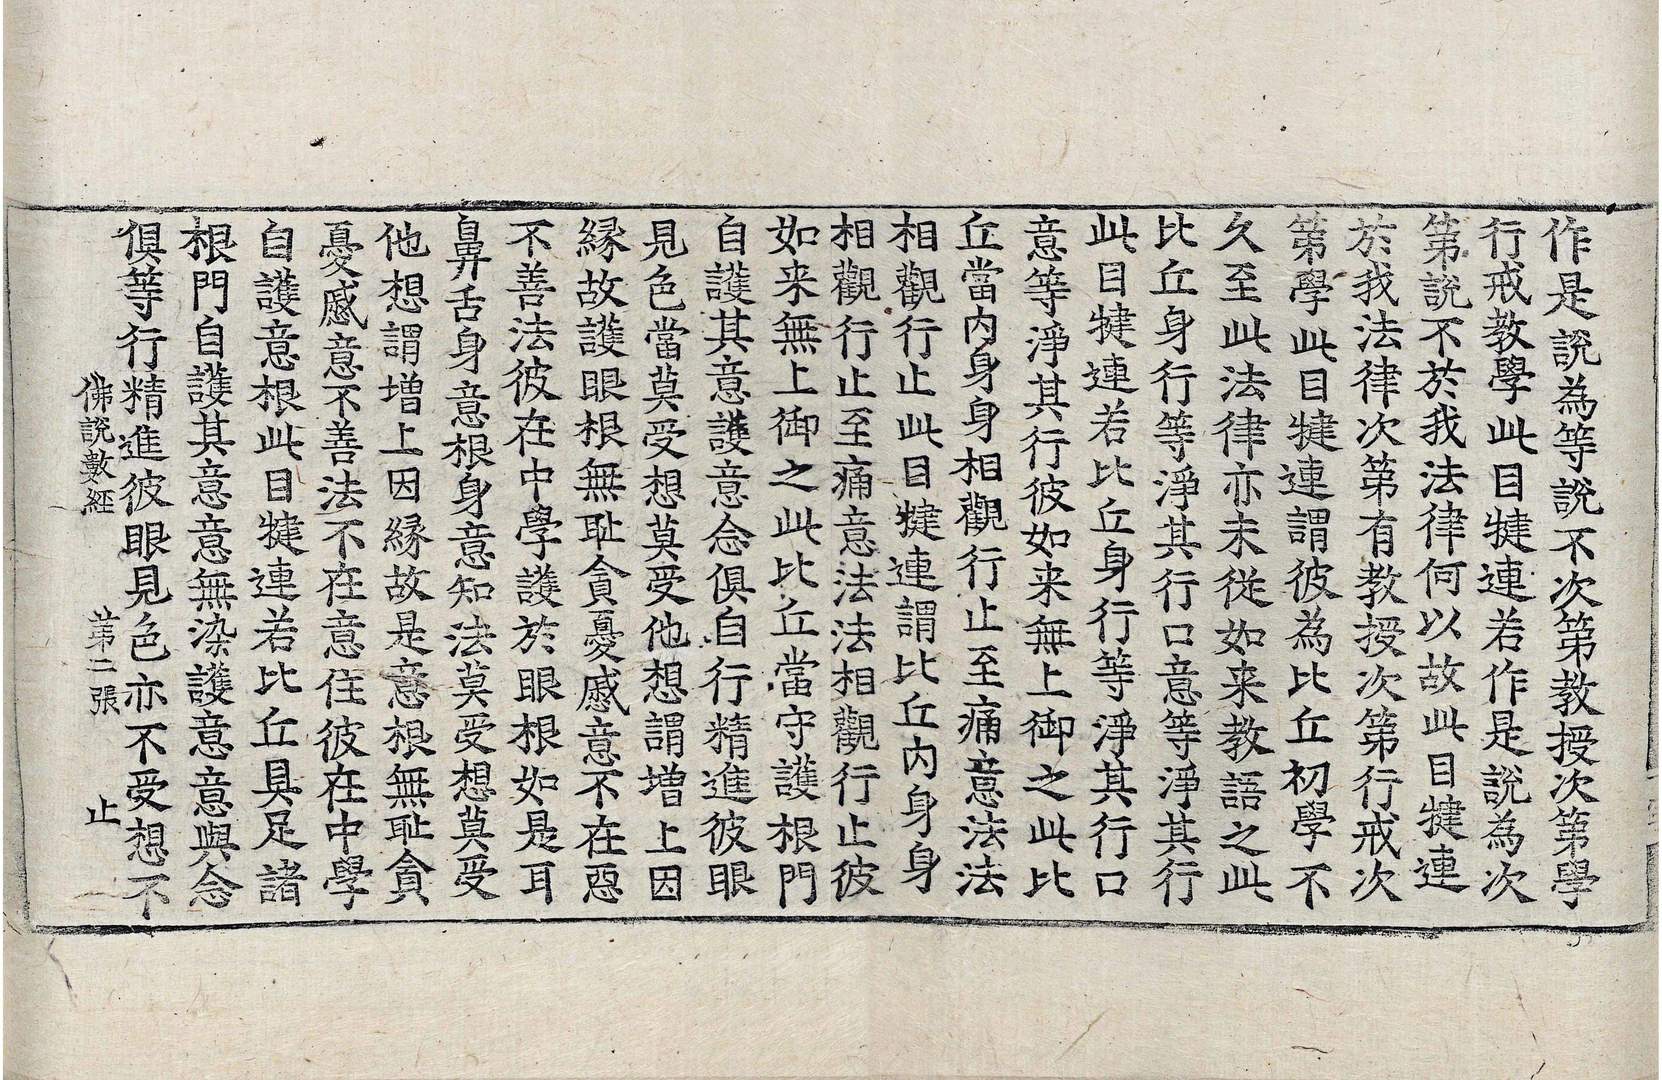 作是說為等說不次第教授次第學
行戒教學此目揵連若作是說為次
第說不於我法律何以故此目揵連
於我法律次第有教授次第行戒次
第學此目揵連謂彼為比丘初學不
久至此法律亦未從如来教語之此
比丘身行等淨其行口意等淨其行
此目揵連若比丘身行等淨其行口
意等淨其行彼如来無上御之此比
丘當內身身相觀行止至痛意法法
相觀行止此目揵連謂比丘內身身
相觀行止至痛意法法相觀行止彼
如来無上御之此比丘當守護根門
自護其意護意念俱自行精進彼眼
見色當莫受想莫受他想謂增上因
緣故護眼根無耻貪憂慼意不在惡
不善法彼在中學護於眼根如是耳
鼻舌身意根身意知法莫受想莫受
他想謂增上因緣故是意根無耻貪
憂慼意不善法不在意住彼在中學
自護意根此目揵連若比丘具足諸
根門自護其意意無染護意意與念
俱等行精進彼眼見色亦不受想不
佛說數經　第二張　止